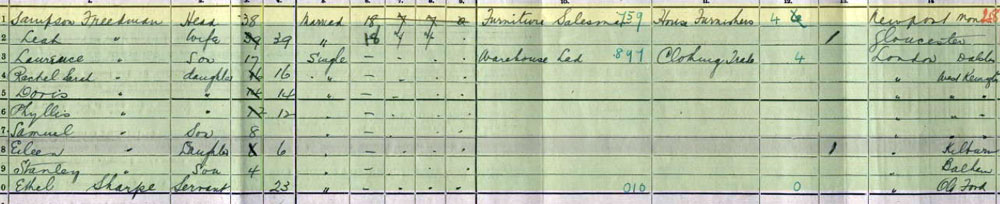 1 Sampson Freedman Head 38 Married 18 7 7 0 Furniture Salesman 759 House Furnishers 4 Newport Mon
2 Leah " Wife 39 39 " 18 7 7 1 Gloucester
3 Laurence " Son 17 Single - Warehouse Lad 897 Clothing Trade 4 London Dalston
4 Rachel Sarah " daughter 16 16 " - - " West Kensington
5 Doris " " 14 14 " - - " "
6 Phyllis " " 12 12 " - - " "
7 Samuel " Son 8 - - " "
8 Eileen " Daughter 6 - - 1 Kilburn
9 Stanley " Son 4 - - " Balham
0 Ethel Sharpe Servant 23 " - - 010 0 " Old Ford